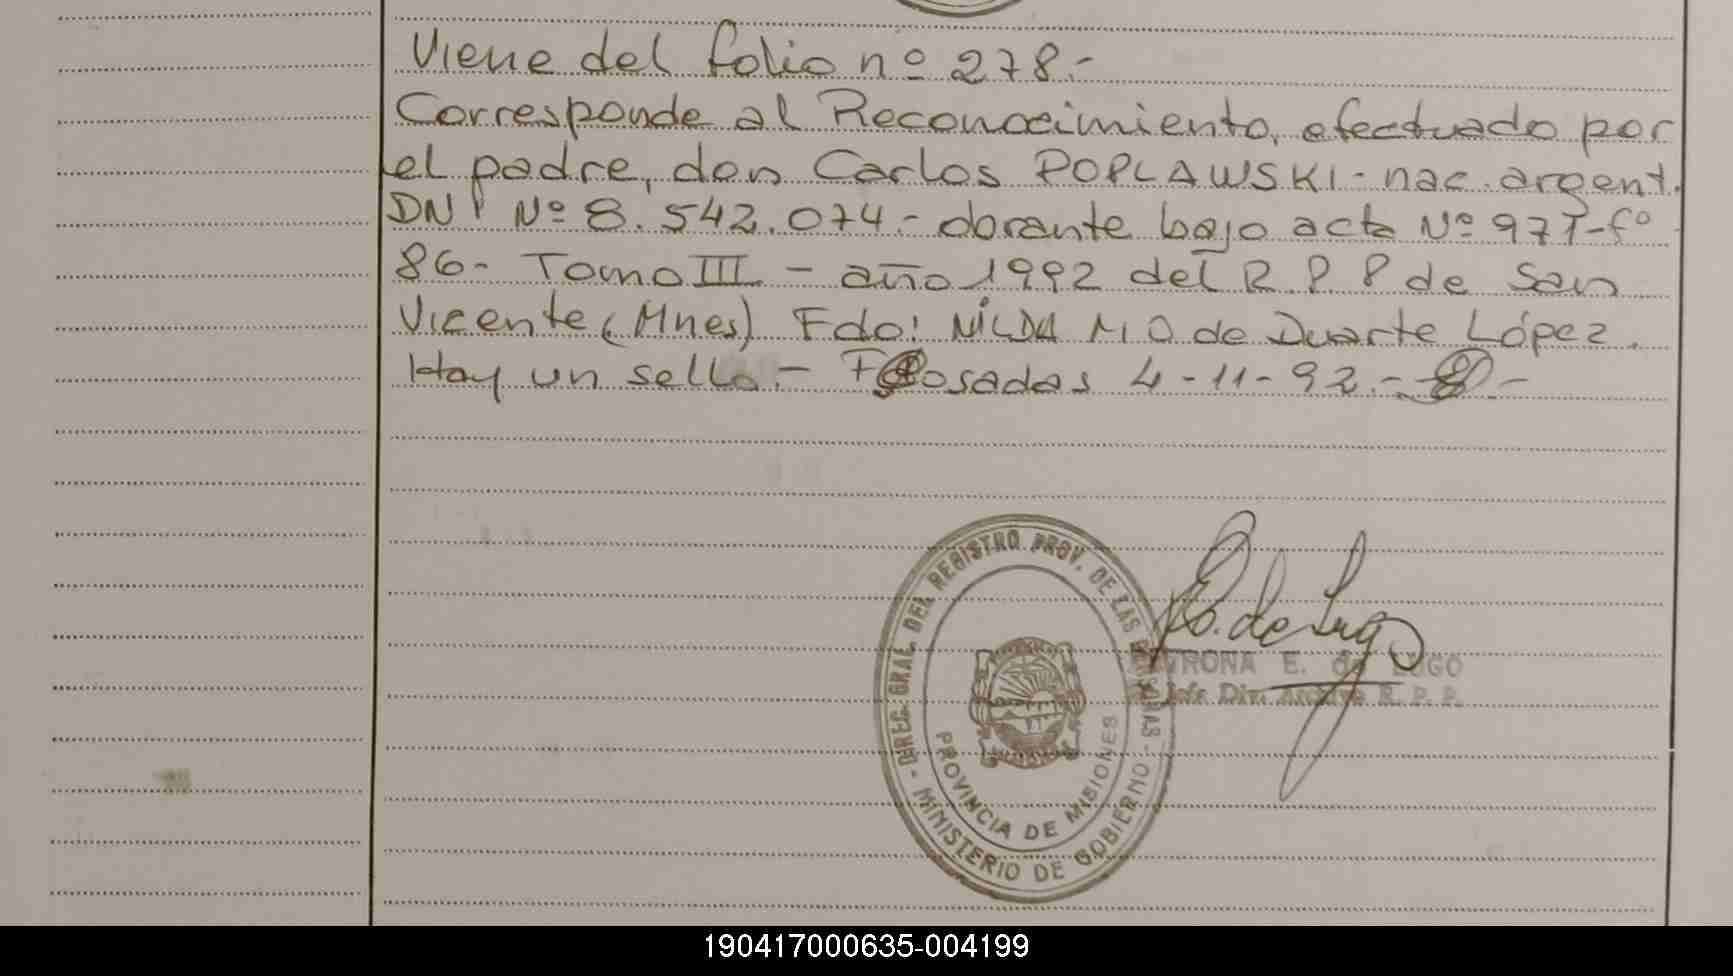 Viene del folio nº 278.-
Corresponde al Reconocimiento, efectuado por
el padre, don Carlos POPLAWSKI - nac. argent.
DNI Nº 8.542.074.- obrante bajo acta Nº 971-fº
86- Tomo III - año 1992 del R.P.P de San
Vicente (Mnes) Fdo: NILDA M O de Duarte López.
Hay un sello.- Posadas 4-11-92.-
DIREC. GRAL. DEL REGISTRO PROV. DE LAS PERSONAS -
MINISTERIO DE GOBIERNO -
PROVINCIA DE MISIONES
E. de LUGO
Jefe Div. Archivo R. P. P.
190417000635-004199